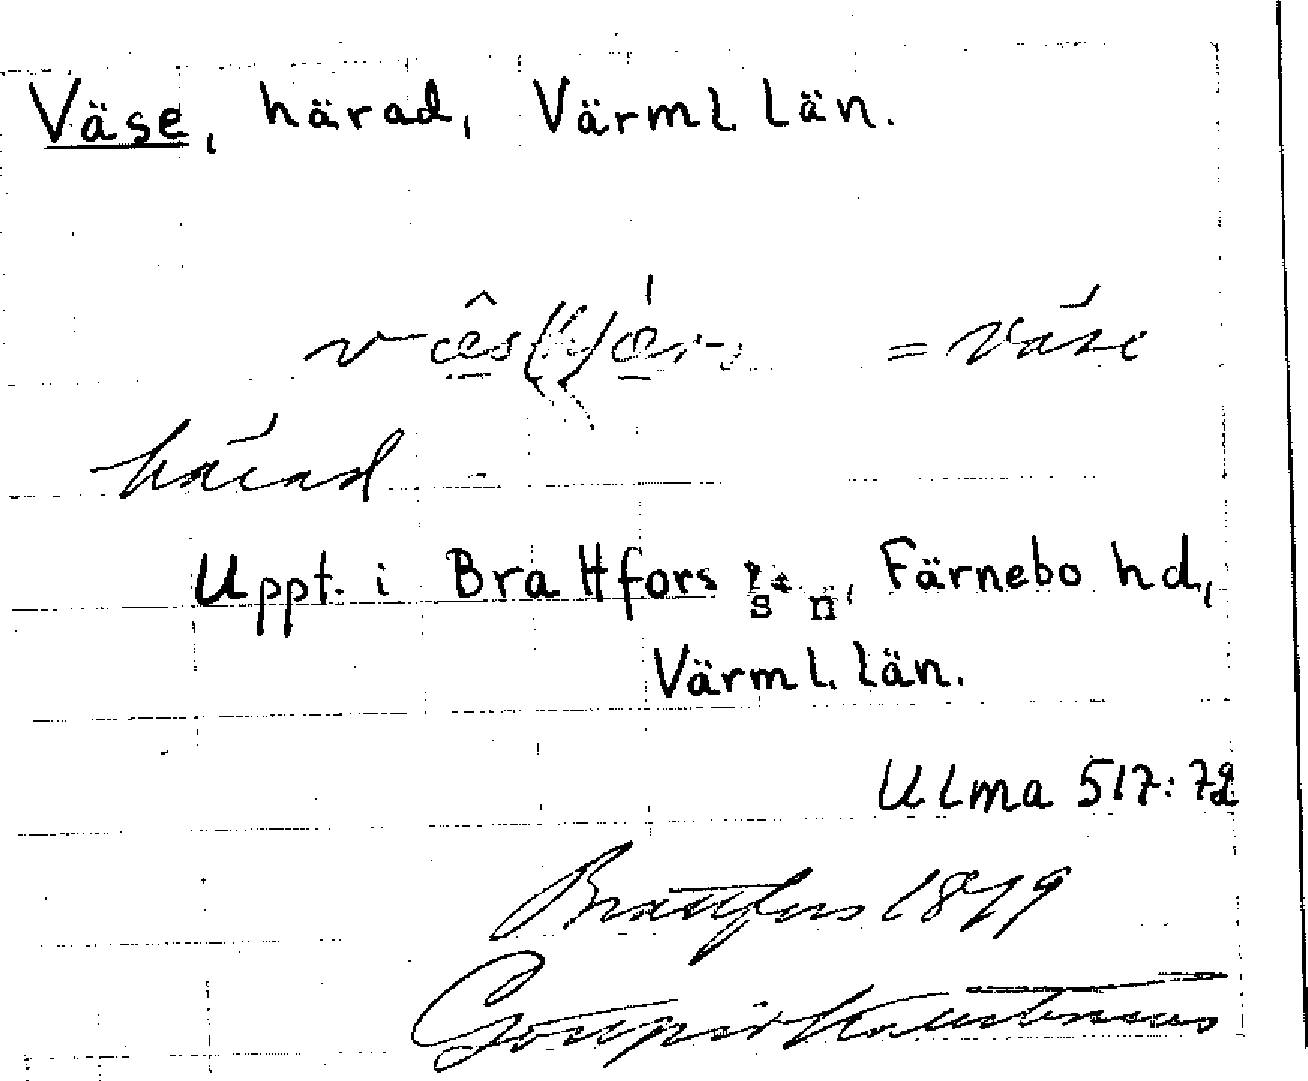 Väse, härad, Värml. län.
= Väse
härad
Uppt. i Brattfors sn, Färnebo hd,
Värml. län.
Ulma 517:72
Brattfors 1879
Göttprid Kallstenius